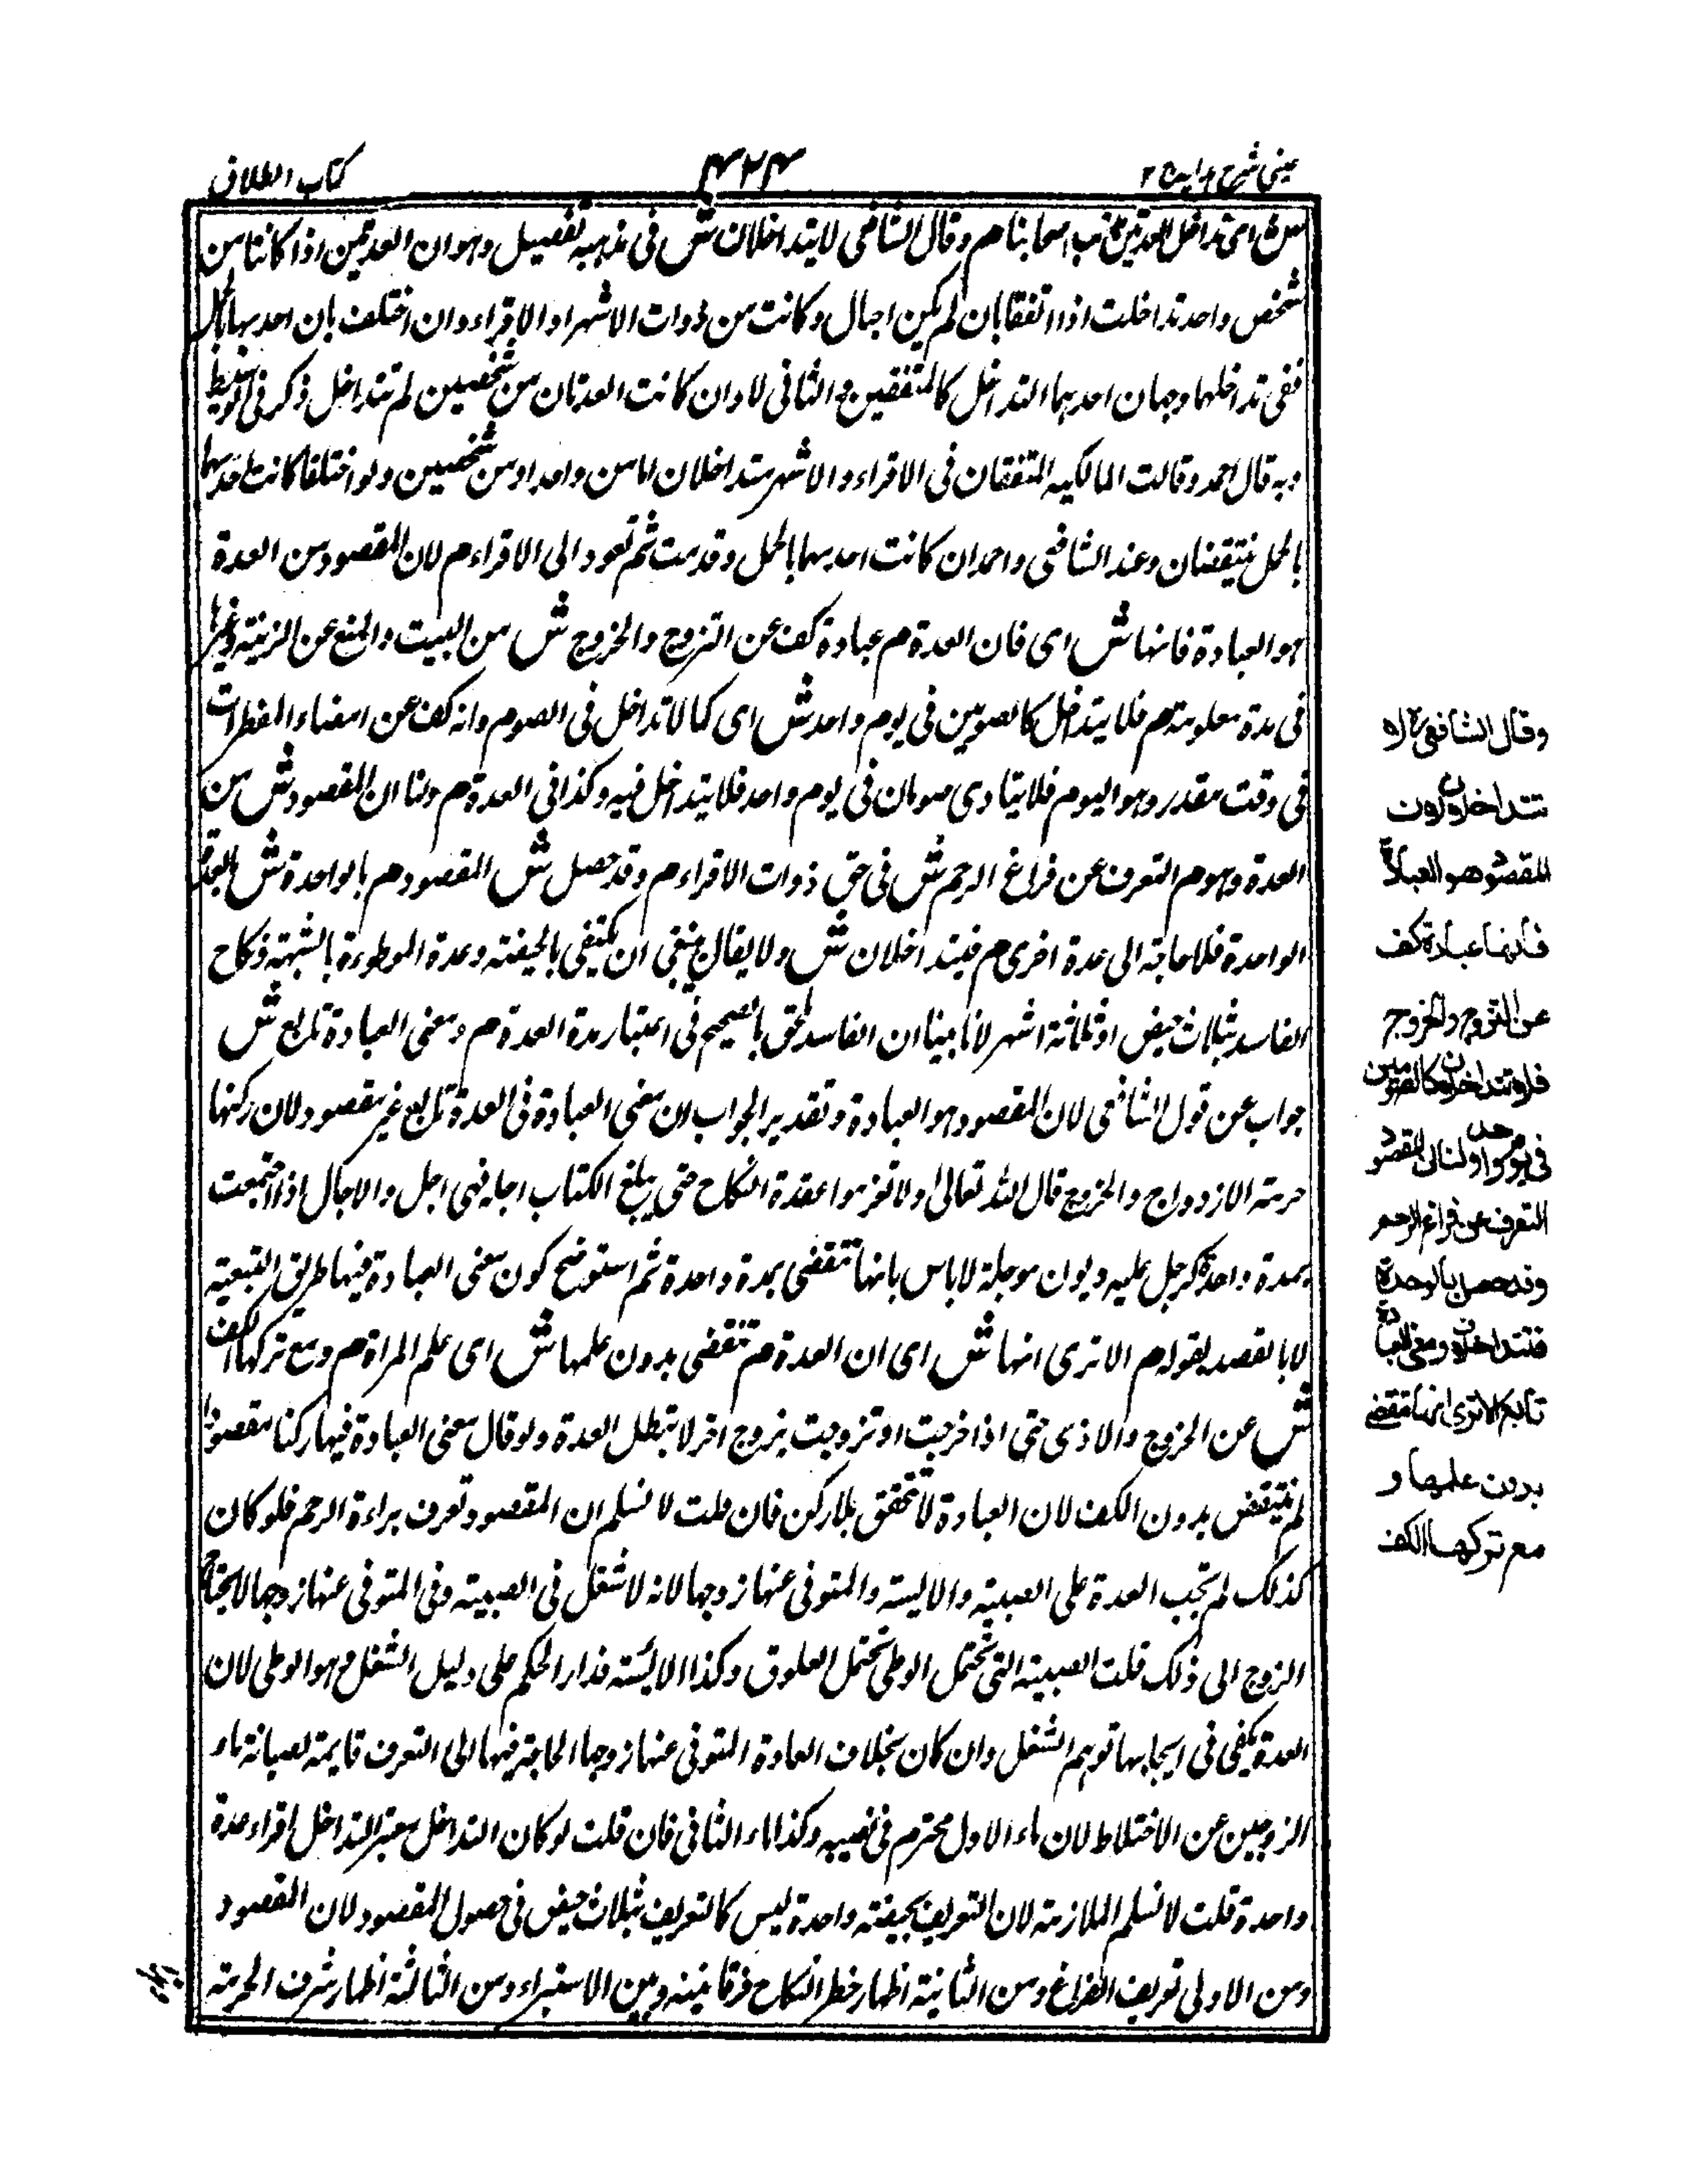 عینی شرح ہدایہ ج ۲
۴۲۴
کتاب الطلاق
ش ای تداخل العدتین مذہب اصحابنا م وقال الشافعی لا یتداخلان ش فی مذہبہ تفصیل وہو ان العدتین اذا کانتا من
شخص واحد تداخلت اذا اتفقا بان لم یکن احبال وکانت من ذوات الاشہر او الاقراء وان اختلف بان احدہما بالحمل
ففی تداخلہا وجہان احدہما التداخل کالمتفقین والثانی لا وان کانت العدتان من شخصین لم تتداخل ذکر فی الوسیط
وبہ قال احمد وقالت المالکیہ المتفقان فی الاقراء والاشہر متداخلان اما من واحد او من شخصین ولو اختلفا کانت احدہما
بالحمل فتنقضان وعند الشافعی واحمد ان کانت احدہما بالحمل وقدمت ثم تعود الی الاقراء م لان المقصود من العدة
ہو العبادة فانہا ش ای فان العدة م عبادة کف عن التزوج والخروج ش من البیت والمنع عن الزینة وغیرہا
فی مدة معلومة م فلا یتداخل کالصومین فی یوم واحد ش ای کما لا تداخل فی الصوم وانہ کف عن اقضاء المفطرات
فی وقت مقدر وہو الیوم فلا یتادی صومان فی یوم واحد فلا یتداخل فیہ وکذا فی العدة م ولنا ان المقصود ش من
العدة وہو م التعرف عن فراغ الرحم ش فی حق ذوات الاقراء م وقد حصل ش المقصود م بالواحدة ش بالعدة
الواحدة فلا حاجة الی عدة اخری م فیتداخلان ش ولا یقال ینبغی ان یکتفی بالحیضة وعدة الموطوءة بالشبہة ونکاح
الفاسد بثلاث حیض او ثلاثة اشہر لانا بینا ان الفاسد یلحق بالصحیح فی اعتبار مدة العدة م ومعنی العبادة تابع ش
جواب عن قول الشافعی لان المقصود ہو العبادة وتقدیر الجواب ان معنی العبادة فی العدة تابع غیر مقصود لان رکنہا
حرمة الازدواج والخروج قال اللہ تعالی ولا تعزموا عقدة النکاح حتی یبلغ الکتاب اجلہ فہی اجل والآجال اذا اجتمعت
بمدة واحدة کرجل علیہ دیون موجلة لا باس بانہا تنقضی بمدة واحدة ثم استوضح کون معنی العبادة فیہا طریق التبعیة
لا بالقصد بقولہ م الا تری انہا ش ای ان العدة م تنقضی بدون علمہا ش ای علم المراة م ومع ترکہا الکف
ش عن الخروج والاذی حتی اذا خرجت او تزوجت بزوج آخر لا تبطل العدة ولو قال معنی العبادة فیہا رکنا مقصودا
لم تنقض بدون الکف لان العبادة لا تتحقق بلا رکن فان قلت لا نسلم ان المقصود تعرف براءة الرحم فلو کان
کذلک لم تجب العدة علی الصبیة والآیسة والمتوفی عنہا زوجہا لانہ لا شغل فی الصبیة وفی المتوفی عنہا زوجہا لا یحتاج
الزوج الی ذلک قلت الصبیة التی تحتمل الوطی تحتمل العلوق وکذا الآیسة فدار الحکم علی دلیل الشغل وہو الوطی لان
العدة یکفی فی ایجابہا توہم الشغل وان کان بخلاف العادة المتوفی عنہا زوجہا الحاجة فیہا الی التعرف قایمة لصیانة ماء
الزوجین عن الاختلاط لان ماء الاول محترم فی نصیبہ وکذا ماء الثانی فان قلت لو کان التداخل معتبر التداخل اقراء عدة
واحدة قلت لا نسلم الملازمة لان التعریف بحیضة واحدة لیس کالتعریف بثلاث حیض فی حصول المقصود لان المقصود
ومن الاولی تعریف الفراغ ومن الثانیة اظہار خطر النکاح فرقا بینہ وبین الاستبراء ومن الثالثة اظہار شرف الحریة
وقال الشافعی رح لا
تتداخلان لان
المقصود ھو العبادة
فانھا عبادة کف
عن التزوج والخروج
فلا تتداخلان کالصومین
فی یوم واحد ولنا ان المقصود
التعرف عن فراغ الرحم
وقد حصل بالواحدة
فتتداخلان ومعنی العبادة
تابع الا تری انھا تنقضی
بدون علمھا و
مع ترکھا الکف